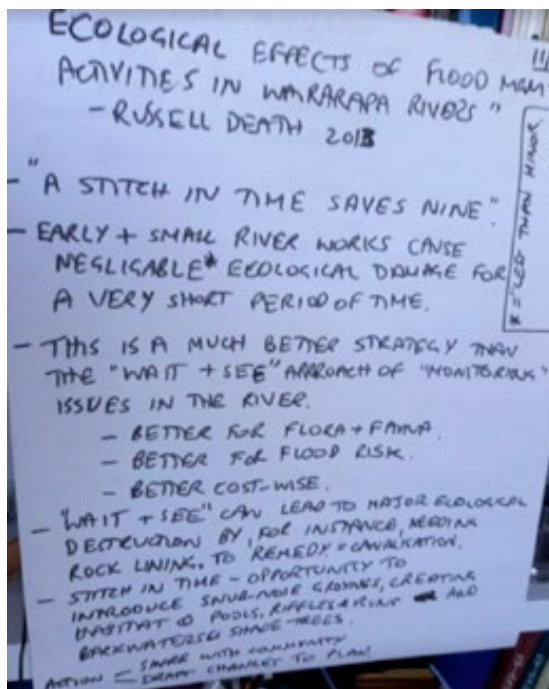 ECOLOGICAL EFFECTS OF FLOOD MGMT
ACTIVITIES IN WAIRARAPA RIVERS"
- RUSSELL DEATH 2013
- "A STITCH IN TIME SAVES NINE".
- EARLY + SMALL RIVER WORKS CAUSE
NEGLIGABLE* ECOLOGICAL DAMAGE FOR
A VERY SHORT PERIOD OF TIME.
* = "LESS THAN MINOR
- THIS IS A MUCH BETTER STRATEGY THAN
THE "WAIT + SEE" APPROACH OF "MONITORING"
ISSUES IN THE RIVER.
- BETTER FOR FLORA + FAUNA.
- BETTER FOR FLOOD RISK.
- BETTER COST-WISE.
- "WAIT + SEE" CAN LEAD TO MAJOR ECOLOGICAL
DESTRUCTION BY, FOR INSTANCE, NEEDING
ROCK LINING, TO REMEDY = CANALISATION.
- STITCH IN TIME - OPPORTUNITY TO
INTRODUCE SNUB-NOSE GROYNES, CREATING
HABITAT POOLS, RIFFLES & RUNS AND
BACKWATERS & SHADE-TREES.
ACTION - SHARE WITH COMMUNITY
- DRAFT CHANGES TO PLAN